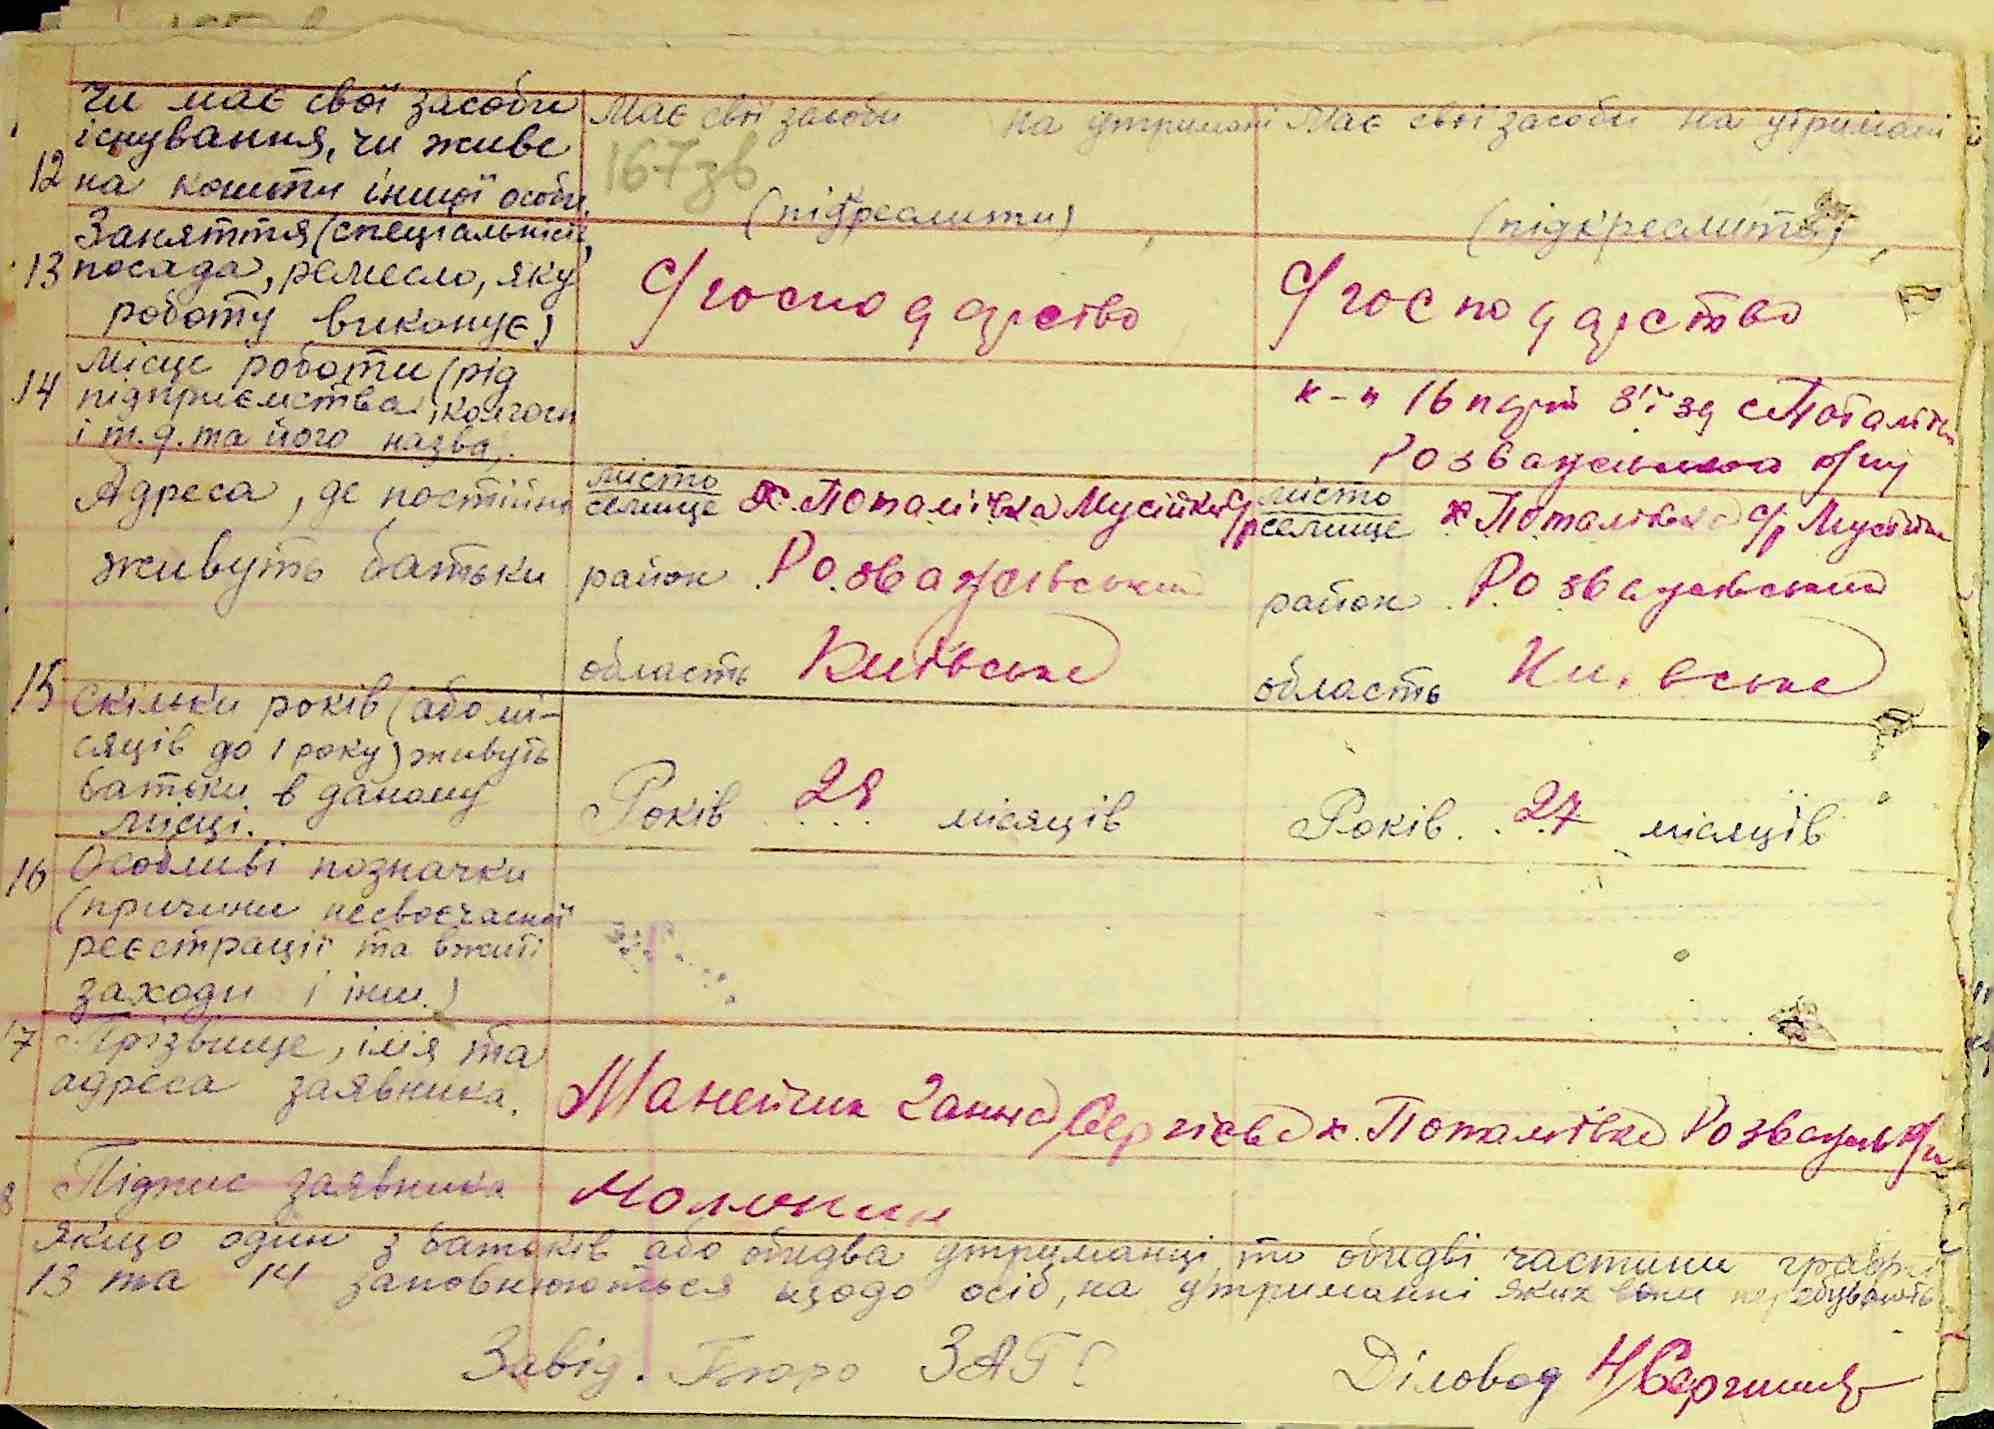 Чи має свої засоби
існування, чи живе
12 на кошти іншої особи
Має свої засоби на утримані
Має свої засоби на утримані
167зв
(підкреслити)
(підкреслити)
Заняття (спеціальність,
13 посада, ремесло, яку
роботу виконує)
С/господарство
С/господарство
Місце роботи (рід
14 підприємства, колгосп
і т.д. та його назва,
к-п 16 парт з'їзд
Адреса, де постійно
живуть батьки
місто
селище х. Поталіївка
район Розважівський
область Київська
місто
селище х Поталіївка с/р
район Розважівський
область Київська
15 Скільки років (або мі-
сяців до 1 року) живуть
батьки в даному
місці.
Років 28 місяців
Років 27 місяців
16 Особливі позначки
(причини несвоєчасної
реєстрації та вжиті
заходи і інш.)
17 Прізвище, імя та
адреса заявника.
Ганна Сергієва х. Поталіївка
8 Підпис заявника
Якщо один з батьків або обидва утриманці, то обидві частини графи
13 та 14 заповнюються щодо осіб, на утриманні яких вони перебувають
Завід. Бюро ЗАГС
Діловод